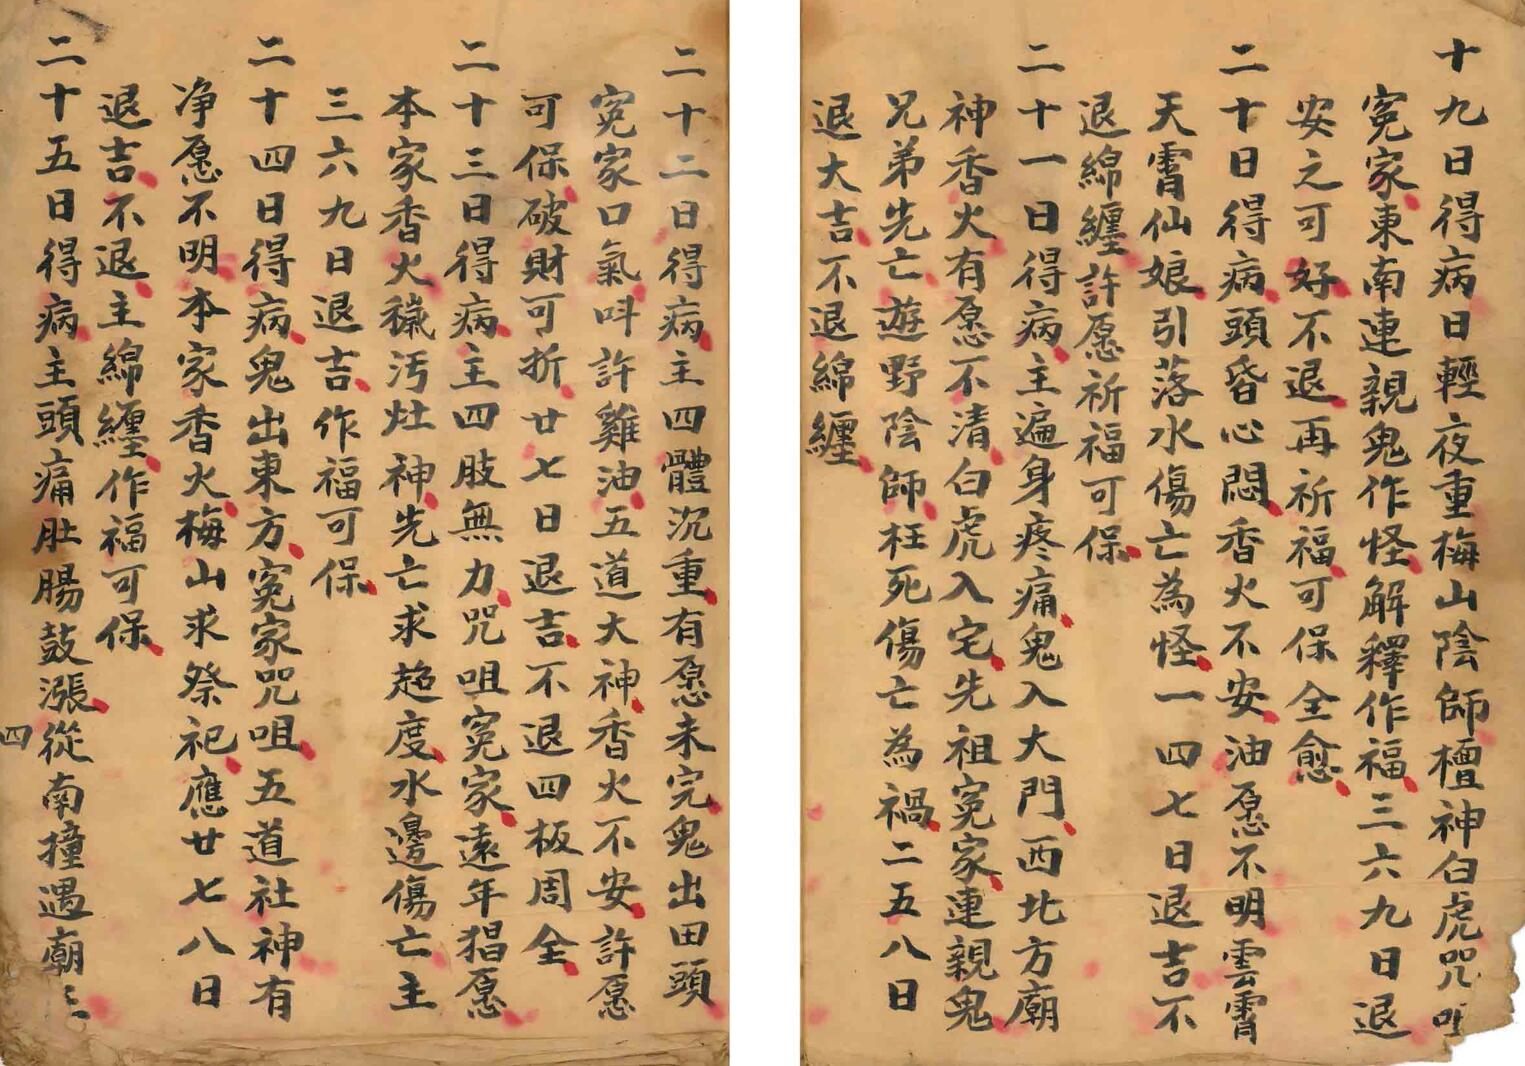 十九日得病日輕夜重梅山陰師檀神白虎咒咀
冤家東南連親鬼作怪解釋作福三六九日退
安之可好不退再祈福可保全愈
二十日得病頭昏心悶香火不安油愿不明雲霄
天霄仙娘引落水傷亡為怪一四七日退吉不
退綿纏許愿祈福可保
二十一日得病主遍身疼痛鬼入大門西北方廟
神香火有愿不清白虎入宅先祖冤家連親鬼
兄弟先亡遊野陰師枉死傷亡為禍二五八日
退大吉不退綿纏
二十二日得病主四體沉重有愿未完鬼出田頭
冤家口氣呌許雞油五道大神香火不安許愿
可保破財可折廿七日退吉不退四板周全
二十三日得病主四肢無力咒咀冤家遠年猖愿
本家香火穢污灶神先亡求超度水邊傷亡主
三六九日退吉作福可保
二十四日得病鬼出東方冤家咒咀五道社神有
净愿不明本家香火梅山求祭祀應廿七八日
退吉不退主綿纏作福可保
二十五日得病主頭痛肚腸鼓漲從南撞遇廟
四